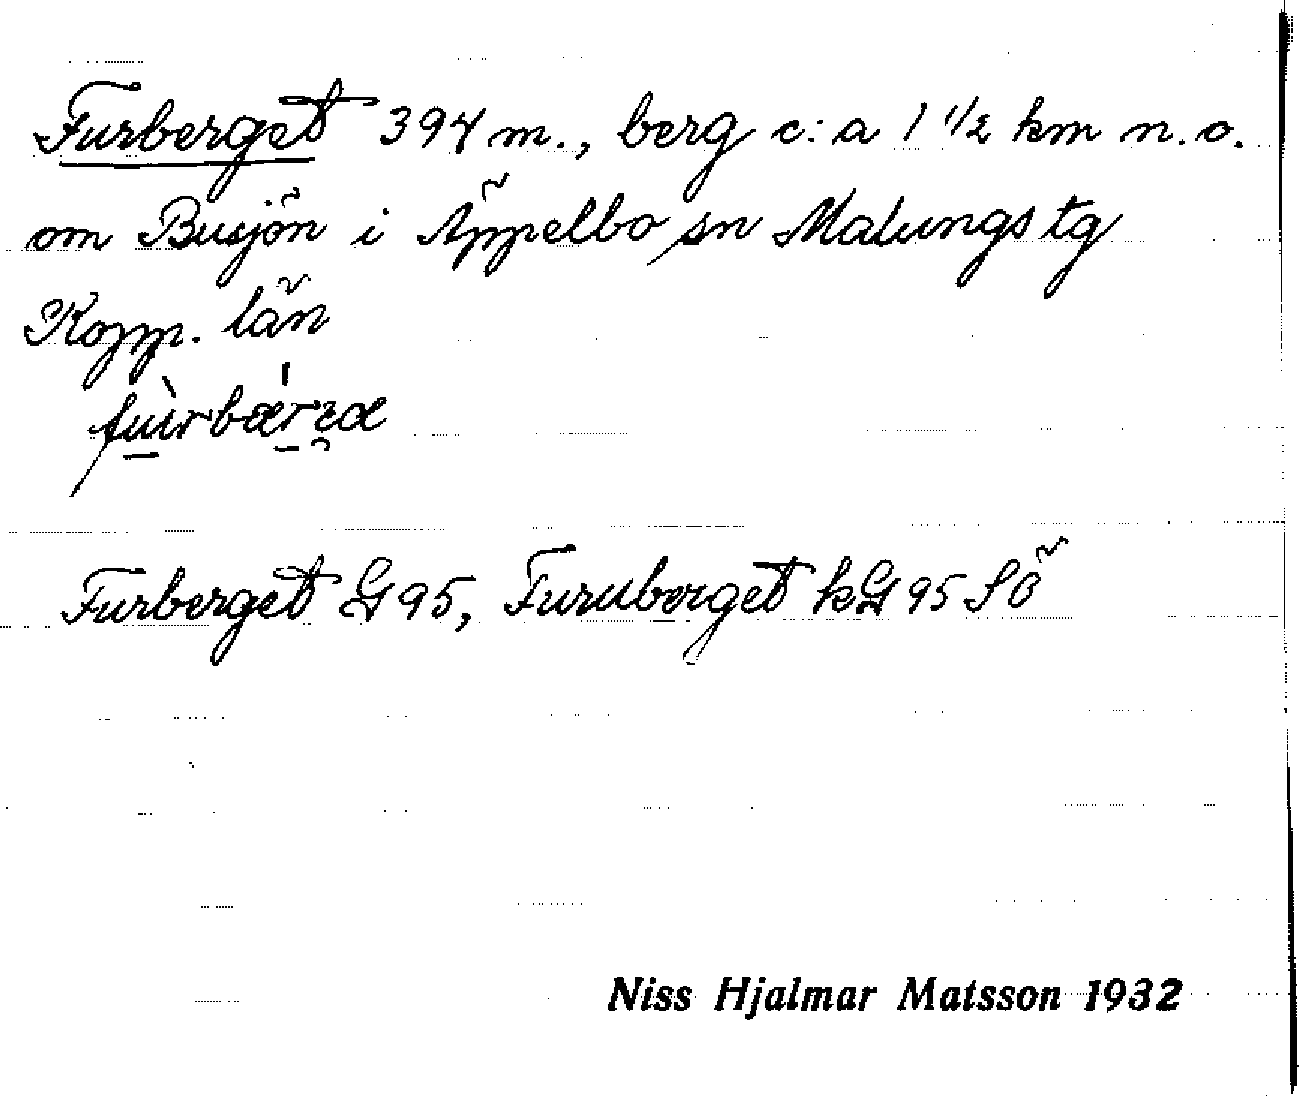 Furberget 394 m., berg c:a 1 1/2 km n.o.
om Busjön i Äppelbo sn Malungs tg
Kopp. län
Furberget G 95, Furuberget kG 95 SÖ
Niss Hjalmar Matsson 1932